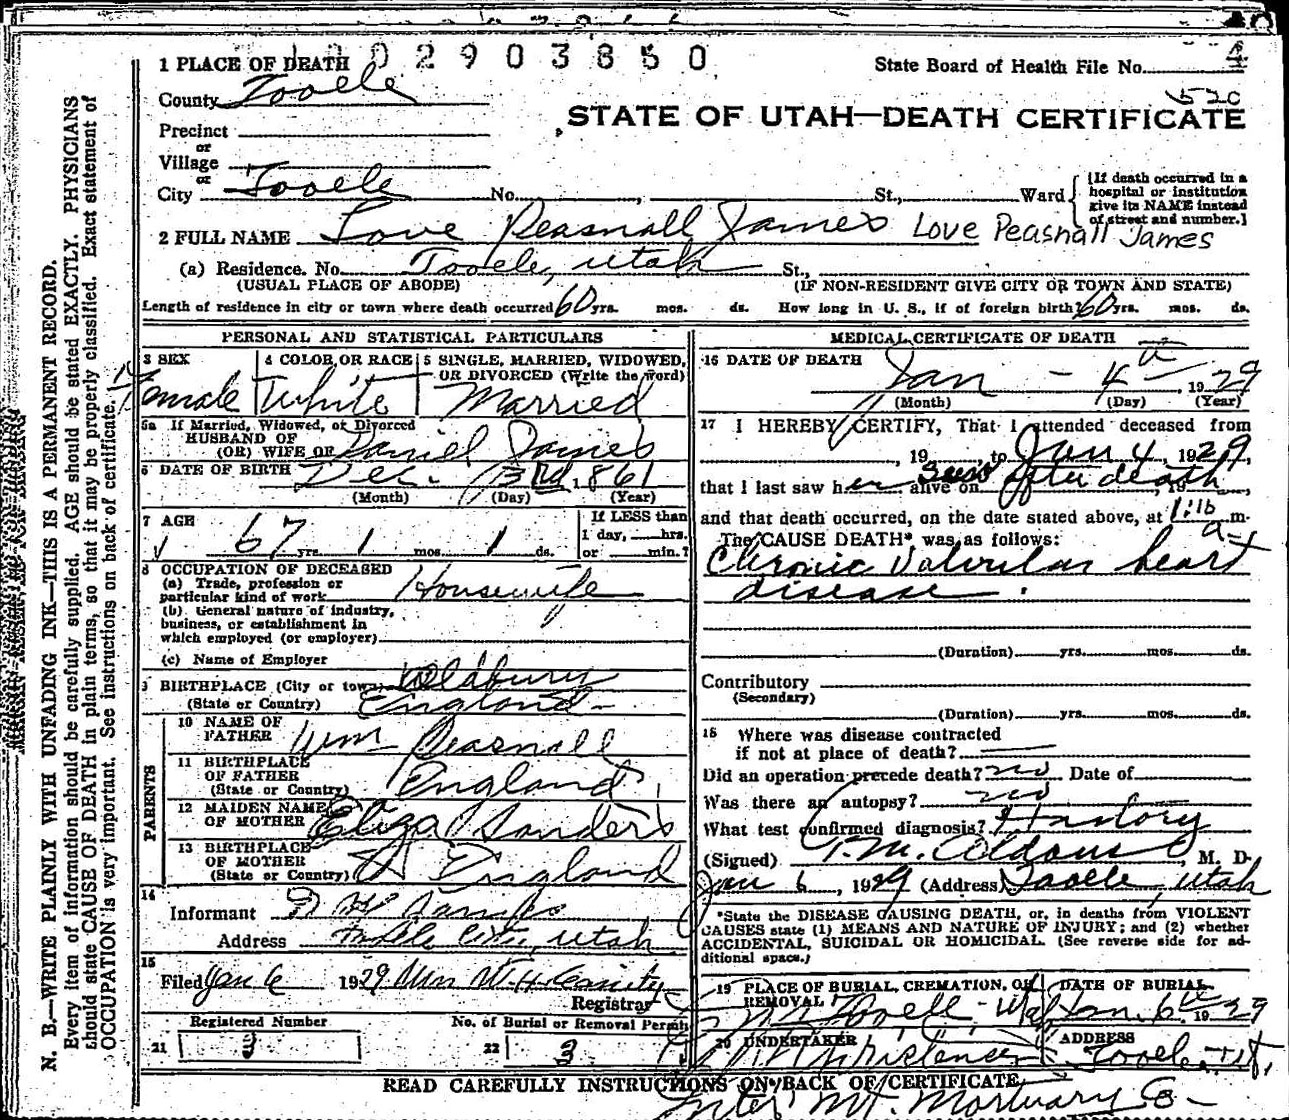 2 9 0 3 8 5 0
1 PLACE OF DEATH
State Board of Health File No. 4
County Tooele
520
STATE OF UTAH—DEATH CERTIFICATE
Precinct
or
Village
or
City Tooele No. , St., Ward
[If death occurred in a hospital or institution give its NAME instead of street and number.]
2 FULL NAME Love Peasnall James Love Peasnall James
(a) Residence. No. Tooele, Utah St.,
(USUAL PLACE OF ABODE) (IF NON-RESIDENT GIVE CITY OR TOWN AND STATE)
Length of residence in city or town where death occurred 60 yrs. mos. ds. How long in U. S., if of foreign birth? 60 yrs. mos. ds.
PERSONAL AND STATISTICAL PARTICULARS
3 SEX 4 COLOR OR RACE 5 SINGLE, MARRIED, WIDOWED,
OR DIVORCED (Write the word)
Female White Married
5a If Married, Widowed, or Divorced
HUSBAND OF
(OR) WIFE OF Daniel James
6 DATE OF BIRTH Dec. 3rd, 1861
(Month) (Day) (Year)
7 AGE If LESS than
67 yrs. 1 mos. 1 ds. 1 day, hrs.
or min.?
8 OCCUPATION OF DECEASED
(a) Trade, profession or
particular kind of work Housewife
(b) General nature of industry,
business, or establishment in
which employed (or employer)
(c) Name of Employer
9 BIRTHPLACE (City or town) Oldbury
(State or Country) England
PARENTS
10 NAME OF
FATHER Wm Peasnall
11 BIRTHPLACE
OF FATHER
(State or Country) England
12 MAIDEN NAME
OF MOTHER Eliza Sanders
13 BIRTHPLACE
OF MOTHER
(State or Country) England
14
Informant
Address Tooele City, Utah
15
Filed Jan 6 1929 Mrs W. H.
Registrar
Registered Number No. of Burial or Removal Permit
21 3 22 3
MEDICAL CERTIFICATE OF DEATH
16 DATE OF DEATH
Jan - 4th, 1929
(Month) (Day) (Year)
17 I HEREBY CERTIFY, That I attended deceased from
, 19 , to Jan 4, 1929,
that I last saw her seen alive on after death, 19 ,
and that death occurred, on the date stated above, at 1:10 a m.
The CAUSE DEATH* was as follows:
Chronic Valvular heart
disease.
(Duration) yrs. mos. ds.
Contributory
(Secondary)
(Duration) yrs. mos. ds.
18 Where was disease contracted
if not at place of death?
Did an operation precede death? no Date of
Was there an autopsy? no
What test confirmed diagnosis? History
(Signed) , M. D.
Jan 6, 1929 (Address) Tooele, Utah
*State the DISEASE CAUSING DEATH, or, in deaths from VIOLENT
CAUSES state (1) MEANS AND NATURE OF INJURY; and (2) whether
ACCIDENTAL, SUICIDAL OR HOMICIDAL. (See reverse side for ad-
ditional space.)
19 PLACE OF BURIAL, CREMATION, OR
REMOVAL DATE OF BURIAL
Tooele - Utah Jan. 6th 1929
20 UNDERTAKER ADDRESS
Tooele, Ut.
READ CAREFULLY INSTRUCTIONS ON BACK OF CERTIFICATE
Inter Mt. Mortuary Co -
N. B.—WRITE PLAINLY WITH UNFADING INK—THIS IS A PERMANENT RECORD.
Every item of information should be carefully supplied. AGE should be stated EXACTLY. PHYSICIANS
should state CAUSE OF DEATH in plain terms, so that it may be properly classified. Exact statement of
OCCUPATION is very important. See instructions on back of certificate.